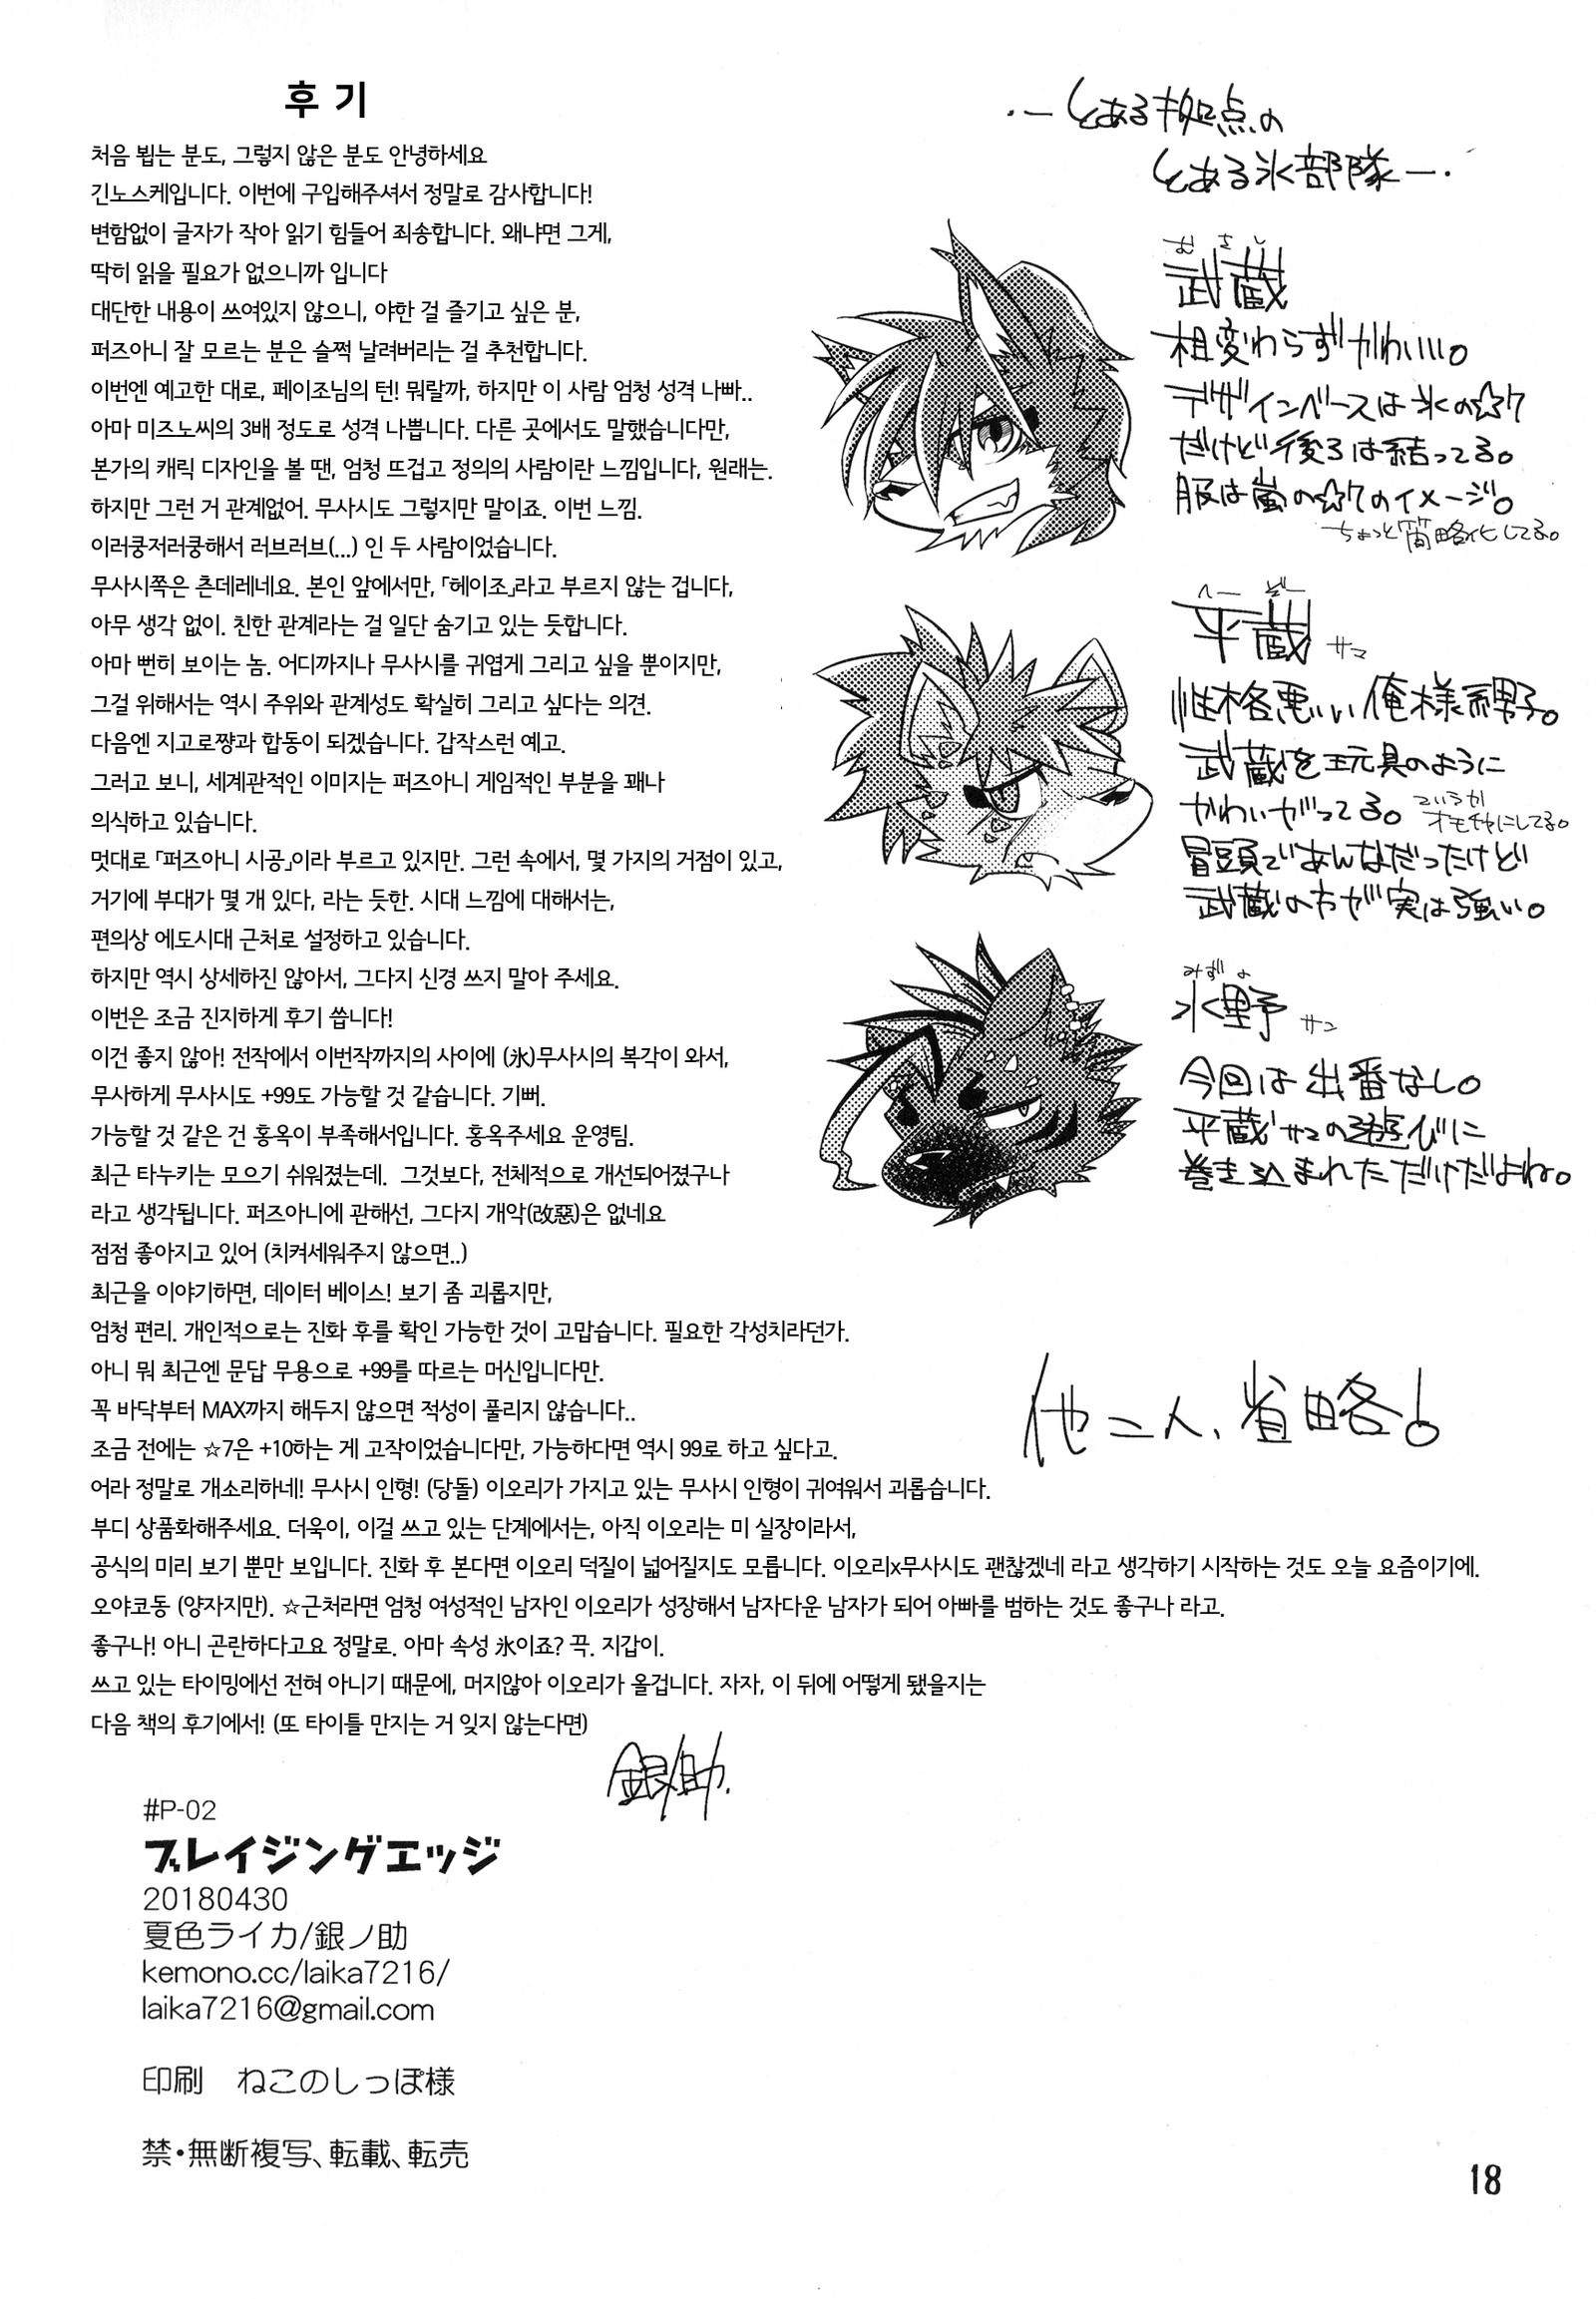 후 기
처음 뵙는 분도, 그렇지 않은 분도 안녕하세요
긴노스케입니다. 이번에 구입해주셔서 정말로 감사합니다!
변함없이 글자가 작아 읽기 힘들어 죄송합니다. 왜냐면 그게,
딱히 읽을 필요가 없으니까 입니다
대단한 내용이 쓰여있지 않으니, 야한 걸 즐기고 싶은 분,
퍼즈아니 잘 모르는 분은 슬쩍 날려버리는 걸 추천합니다.
이번엔 예고한 대로, 페이조님의 턴! 뭐랄까, 하지만 이 사람 엄청 성격 나빠..
아마 미즈노씨의 3배 정도로 성격 나쁩니다. 다른 곳에서도 말했습니다만,
본가의 캐릭 디자인을 볼 땐, 엄청 뜨겁고 정의의 사람이란 느낌입니다, 원래는.
하지만 그런 거 관계없어. 무사시도 그렇지만 말이죠. 이번 느낌.
이러쿵저러쿵해서 러브러브(...) 인 두 사람이었습니다.
무사시쪽은 츤데레네요. 본인 앞에서만, 「헤이조」라고 부르지 않는 겁니다,
아무 생각 없이. 친한 관계라는 걸 일단 숨기고 있는 듯합니다.
아마 뻔히 보이는 놈. 어디까지나 무사시를 귀엽게 그리고 싶을 뿐이지만,
그걸 위해서는 역시 주위와 관계성도 확실히 그리고 싶다는 의견.
다음엔 지고로쨩과 합동이 되겠습니다. 갑작스런 예고.
그러고 보니, 세계관적인 이미지는 퍼즈아니 게임적인 부분을 꽤나
의식하고 있습니다.
멋대로 「퍼즈아니 시공」이라 부르고 있지만. 그런 속에서, 몇 가지의 거점이 있고,
거기에 부대가 몇 개 있다, 라는 듯한. 시대 느낌에 대해서는,
편의상 에도시대 근처로 설정하고 있습니다.
하지만 역시 상세하진 않아서, 그다지 신경 쓰지 말아 주세요.
이번은 조금 진지하게 후기 씁니다!
이건 좋지 않아! 전작에서 이번작까지의 사이에 (氷)무사시의 복각이 와서,
무사하게 무사시도 +99도 가능할 것 같습니다. 기뻐.
가능할 것 같은 건 홍옥이 부족해서입니다. 홍옥주세요 운영팀.
최근 타누키는 모으기 쉬워졌는데. 그것보다, 전체적으로 개선되어졌구나
라고 생각됩니다. 퍼즈아니에 관해선, 그다지 개악(改惡)은 없네요
점점 좋아지고 있어 (치켜세워주지 않으면..)
최근을 이야기하면, 데이터 베이스! 보기 좀 괴롭지만,
엄청 편리. 개인적으로는 진화 후를 확인 가능한 것이 고맙습니다. 필요한 각성치라던가.
아니 뭐 최근엔 문답 무용으로 +99를 따르는 머신입니다만.
꼭 바닥부터 MAX까지 해두지 않으면 적성이 풀리지 않습니다..
조금 전에는 ☆7은 +10하는 게 고작이었습니다만, 가능하다면 역시 99로 하고 싶다고.
어라 정말로 개소리하네! 무사시 인형! (당돌) 이오리가 가지고 있는 무사시 인형이 귀여워서 괴롭습니다.
부디 상품화해주세요. 더욱이, 이걸 쓰고 있는 단계에서는, 아직 이오리는 미 실장이라서,
공식의 미리 보기 뿐만 보입니다. 진화 후 본다면 이오리 덕질이 넓어질지도 모릅니다. 이오리x무사시도 괜찮겠네 라고 생각하기 시작하는 것도 오늘 요즘이기에.
오야코동 (양자지만). ☆근처라면 엄청 여성적인 남자인 이오리가 성장해서 남자다운 남자가 되어 아빠를 범하는 것도 좋구나 라고.
좋구나! 아니 곤란하다고요 정말로. 아마 속성 氷이죠? 끅. 지갑이.
쓰고 있는 타이밍에선 전혀 아니기 때문에, 머지않아 이오리가 올겁니다. 자자, 이 뒤에 어떻게 됐을지는
다음 책의 후기에서! (또 타이틀 만지는 거 잊지 않는다면)
銀ノ助.
・ーとある拠点の
とある氷部隊ー・
むさし
武蔵
相変わらずかわいい。
デザインベースは氷の☆7
だけど後ろは結ってる。
服は嵐の☆7のイメージ。
ちょっと簡略化してる。
へーぞー
平蔵 サマ
性格悪い俺様系男子。
武蔵を玩具のように
かわいがってる。というか
オモチャにしてる。
冒頭であんなだったけど
武蔵の方が実は強い。
みずの
水野 サン
今回は出番なし。
平蔵サマの遊びに
巻き込まれただけだよね。
他二人、省略!
#P-02
ブレイジングエッジ
20180430
夏色ライカ/銀ノ助
kemono.cc/laika7216/
laika7216@gmail.com
印刷 ねこのしっぽ様
禁・無断複写、転載、転売
18